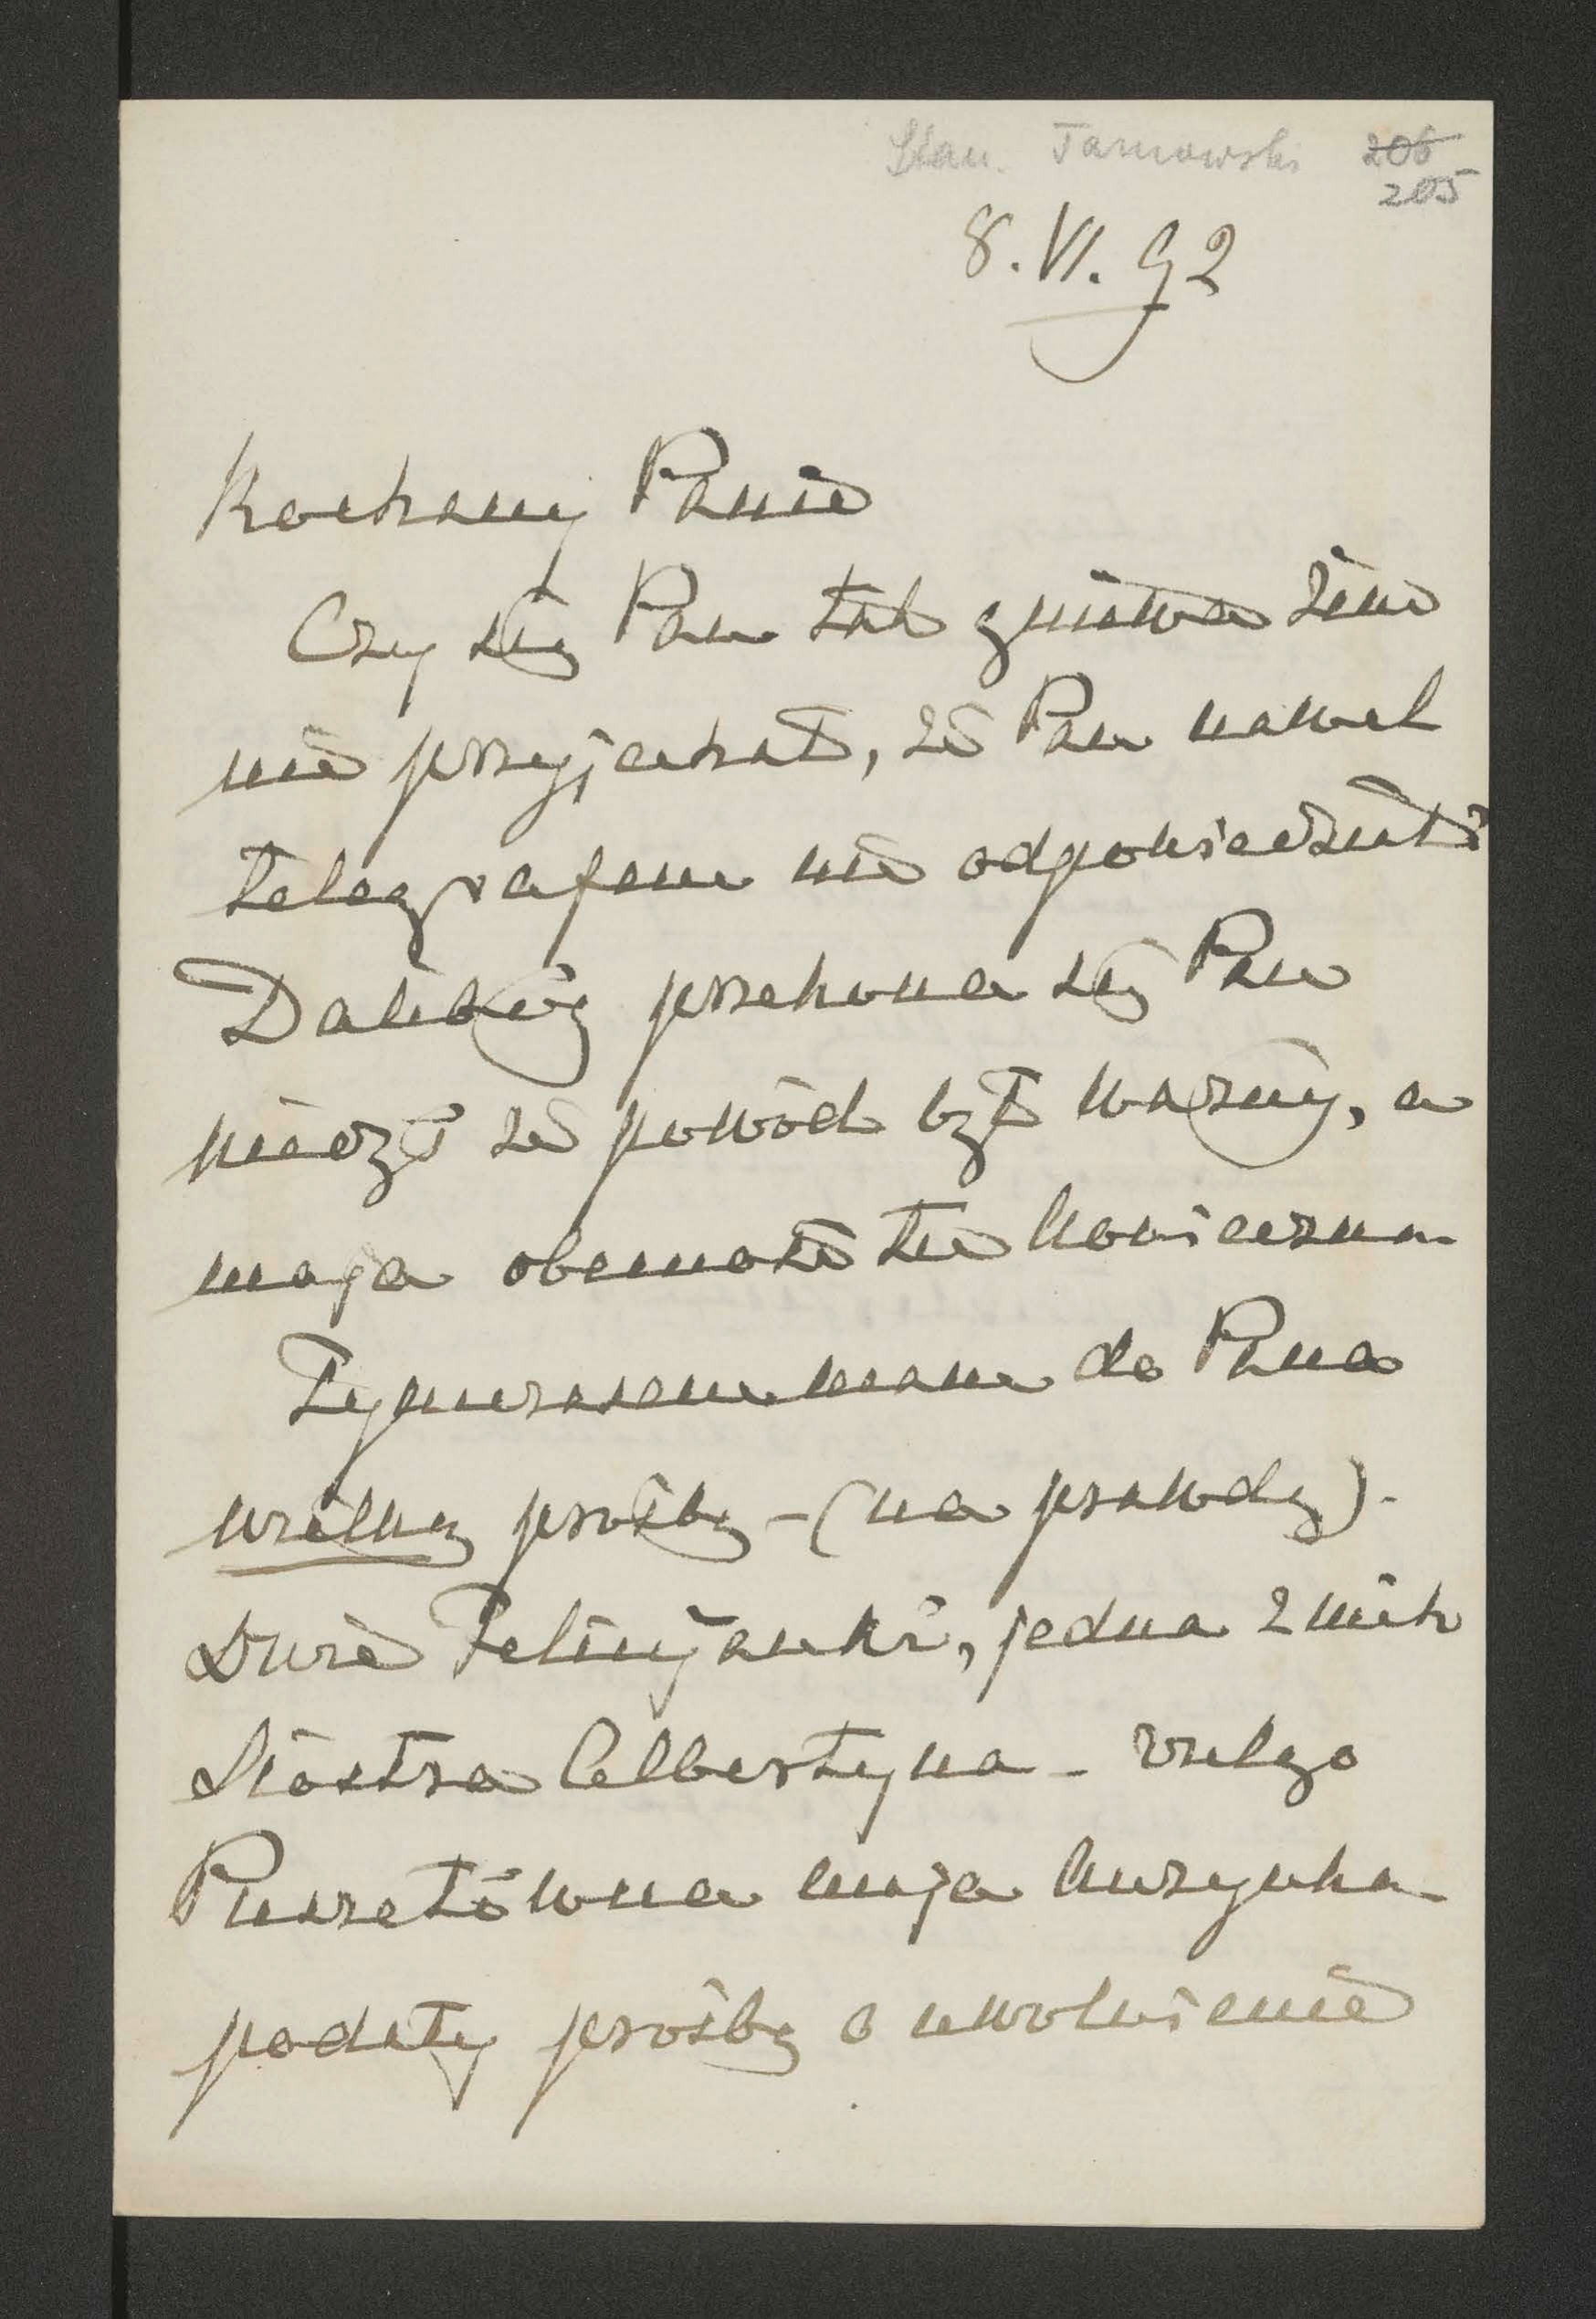 Stan. Tarnowski 206
205
8. VI. 92
Kochany Panie
Czy się Pan tak gniewa żem
nie przyjechał, że Pan nawet
telegrafem nie odpowiedział?
Dalibóg przekona się Pan
kiedyś że powód był ważny, a
moja obecność tu konieczna.
Tymczasem mam do Pana
wielką prośbę – (na prawdę).
Dwie Felicyanki, jedna z nich
Siostra Albertyna – vulgo
Puszetówna moja kuzynka
podały prośbę o uwolnienie